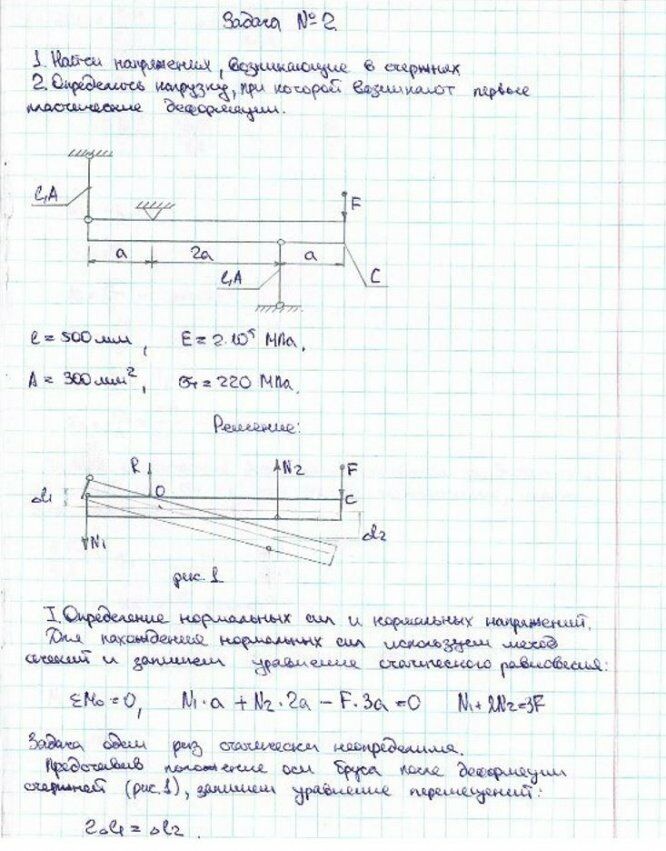 Задача №2
1. Найти напряжения, возникающие в стержнях
2. Определить нагрузку, при которой возникают первые
пластические деформации.
l,A
F
a
2a
l,A
a
C
l = 500 мм, E = 2·10⁵ МПа,
A = 300 мм², σт = 220 МПа.
Решение:
R
N2
F
O
C
Δl1
N1
Δl2
рис. 1
I. Определение нормальных сил и нормальных напряжений.
Для нахождения нормальных сил используем метод
сечений и запишем уравнение статического равновесия:
ΣMo = 0, N1·a + N2·2a − F·3a = 0 N1 + 2N2 = 3F
Задача один раз статически неопределима.
Представив положение оси бруса после деформации
стержней (рис. 1), запишем уравнение перемещений:
2Δl1 = Δl2.